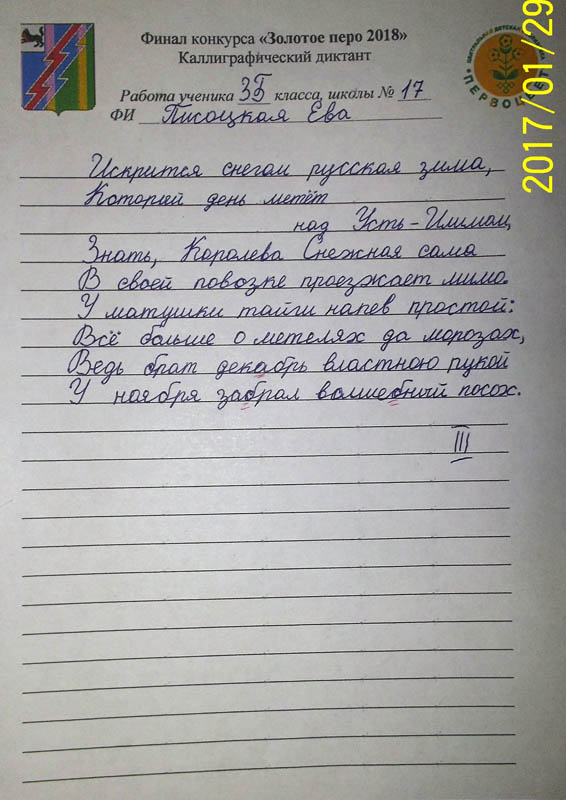 Финал конкурса «Золотое перо 2018»
Каллиграфический диктант
Работа ученика 3Б класса, школы № 17
ФИ Писоцкая Ева
Искрится снегом русская зима,
Который день метёт
над Усть-Илимом,
Знать, Королева Снежная сама
В своей повозке проезжает мимо.
У матушки тайги напев простой:
Всё больше о метелях да морозах,
Ведь брат декабрь властною рукой
У ноября забрал волшебный посох.
III
ЦЕНТРАЛЬНАЯ ДЕТСКАЯ
ПЕРВОЦВЕТ
2017/01/29